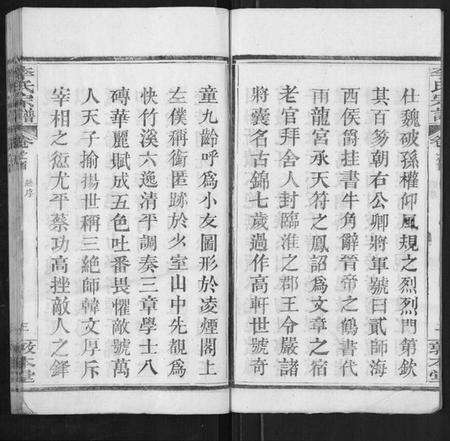 杜魏破孫權仰風規之烈烈門第欽
其百篆朝右公卿將軍號曰貳師海
西侯爵挂書牛角辭管帝之鶴書代
雨龍宮承天符之鳳詔為文章之宿
老官拜舍人封臨淮之郡王令嚴諸
將囊名古錦七歲過作高軒世號奇
童九齡呼為小友圖形於凌煙閣上
左僕稱銜匿跡於少室山中先覩為
快竹溪六逸清平調奏三章學士八
磚華麗賦成五色吐番畏懼敵號萬
人天子揄揚世稱三絕師韓文厚斥
宰相之愆尤平蔡功高挫敵人之鋒
李氏宗譜
卷首
敦本堂